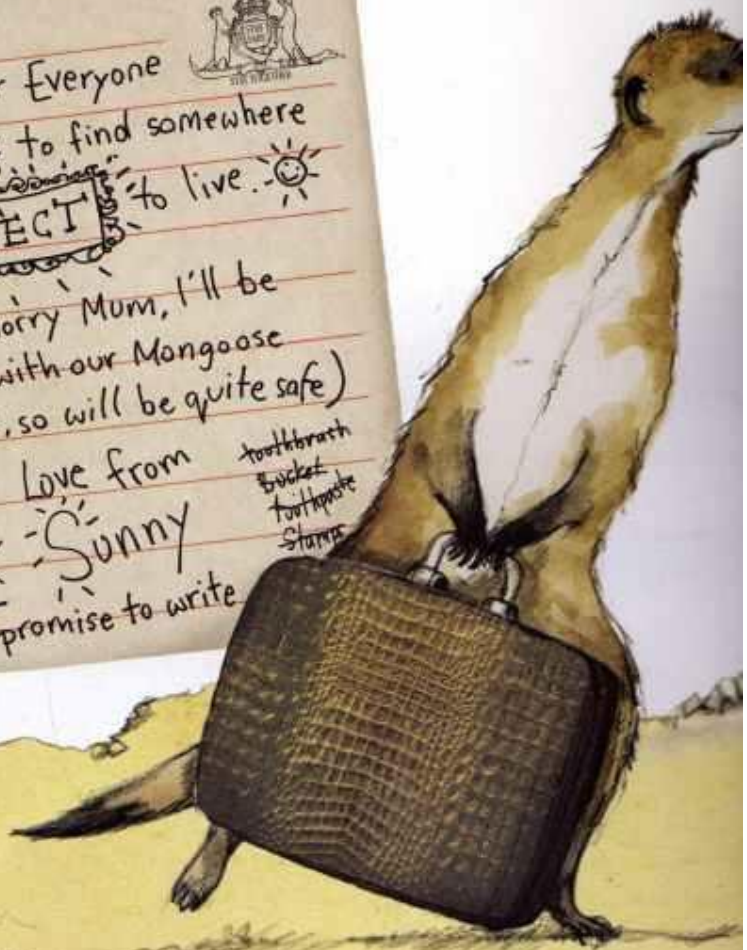 Everyone
to find somewhere
ECT to live.
orry Mum, I'll be
with our Mongoose
, so will be quite safe)
Love from
Sunny
promise to write
toothbrush
Bucket
toothpaste
Stamps